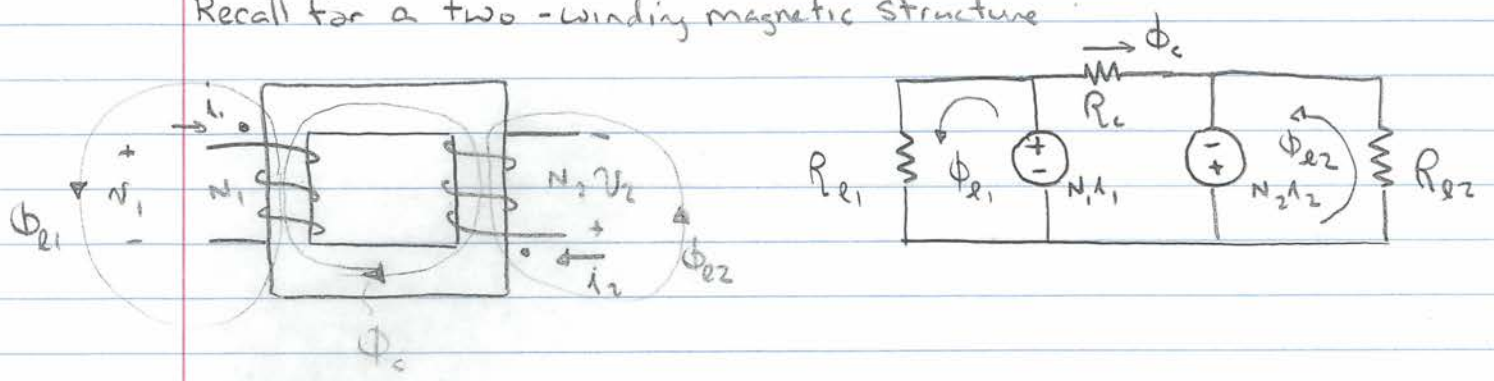 Recall for a two-winding magnetic structure
i₁
+
v₁
-
N₁
ϕ_l1
ϕ_c
-
N₂ v₂
+
i₂
ϕ_l2
ϕ_c
R_c
R_l1
ϕ_l1
+
-
N₁i₁
-
+
N₂i₂
ϕ_l2
R_l2